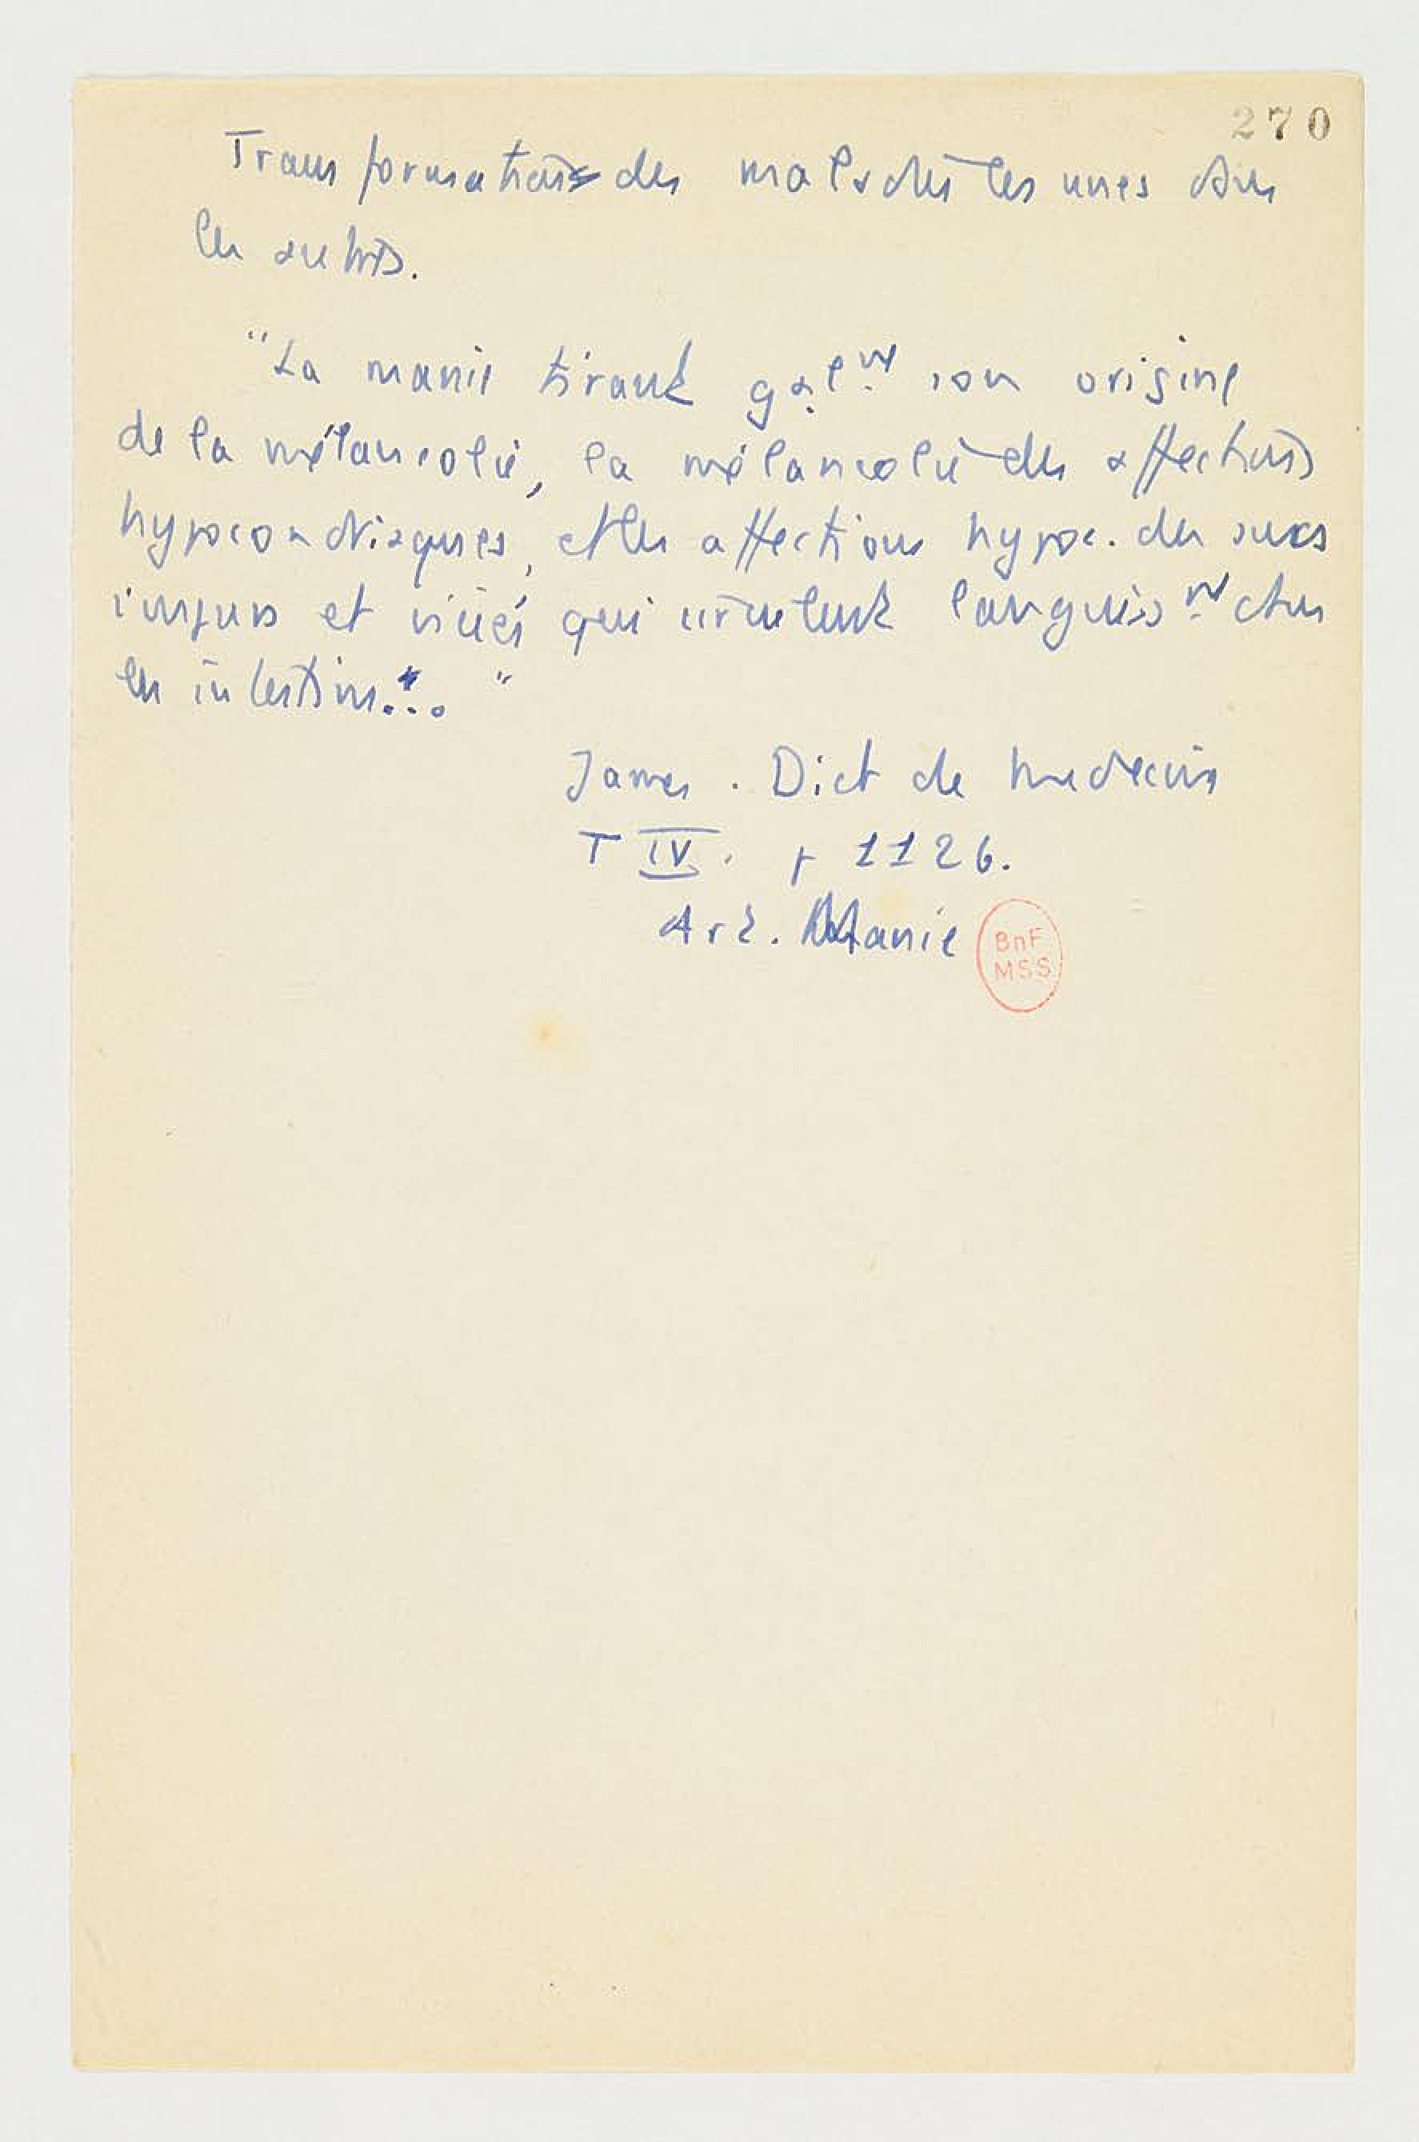 270
Transformations des maladies les unes dans
les autres.
"La manie tirant galnt son origine
de la mélancolie, la mélancolie des affections
hypocondriaques, et les affections hypoc. des sucs
impurs et viciés qui circulent languissnt dans
les intestins..."
James. Dict de medecine
T IV. p 1126.
Art. Manie
BnF
MSS